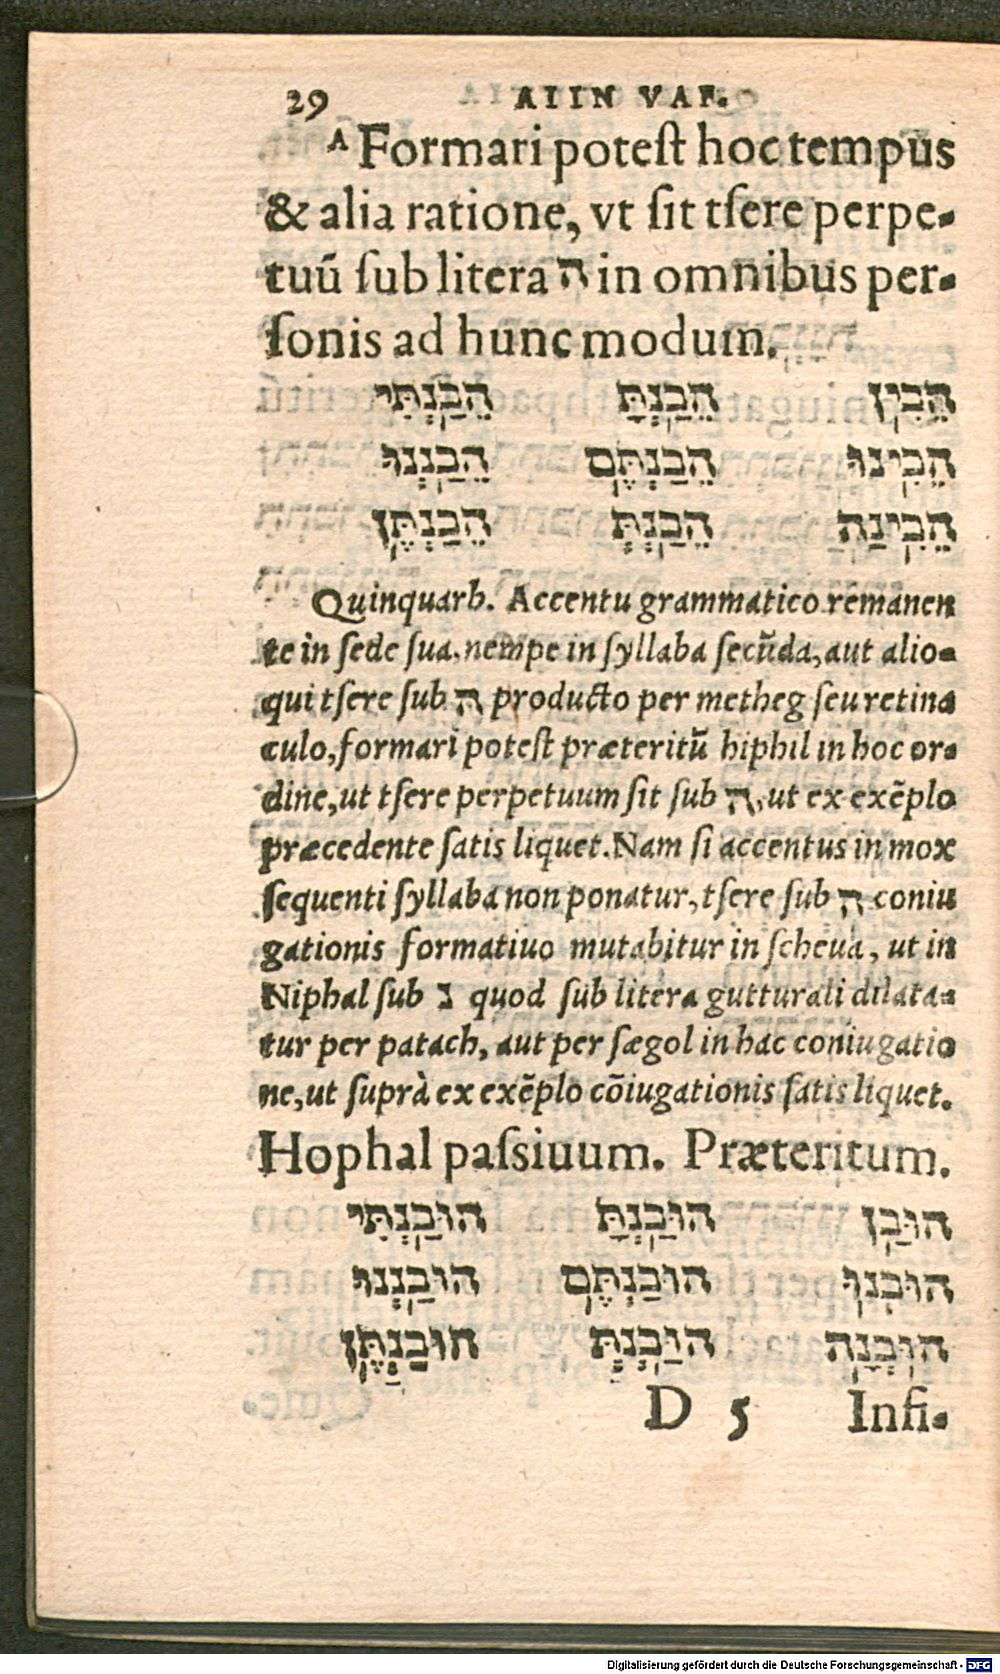 29 AIIN VAF.
A Formari poteſt hoc tempus
& alia ratione, vt ſit tſere perpe-
tuū ſub litera ה in omnibus per-
ſonis ad hunc modum.
הֵבִין הֵבַנְתָּ הֵבַנְתִּי
הֵבִינוּ הֵבַנְתֶּם הֵבַנְנוּ
הֵבִינַה הֵבַנְתְּ הֵבַנְתֶּן
Quinquarb. Accentu grammatico remanen
te in ſede ſua. nempe in ſyllaba ſecūda, aut alio-
qui tſere ſub ה producto per metheg ſeu retina
culo, formari poteſt præteritū hiphil in hoc or-
dine, ut tſere perpetuum ſit ſub ה, ut ex exēplo
præcedente ſatis liquet. Nam ſi accentus in mox
ſequenti ſyllaba non ponatur, tſere ſub ה coniu
gationis formatiuo mutabitur in ſcheua, ut in
Niphal ſub נ quod ſub litera gutturali dilata-
tur per patach, aut per ſægol in hac coniugatio
ne, ut ſuprà ex exēplo cōiugationis ſatis liquet.
Hophal paſsiuum. Præteritum.
הוּבַן הוּבַנְתָּ הוּבַנְתִּי
הוּבְנוּ הוּבַנְתֶּם הוּבַנְנוּ
הוּבְנָה הוּבַנְתְּ הוּבַנְתֶּן
D 5 Infi-
Digitalisierung gefördert durch die Deutsche Forschungsgemeinschaft - DFG